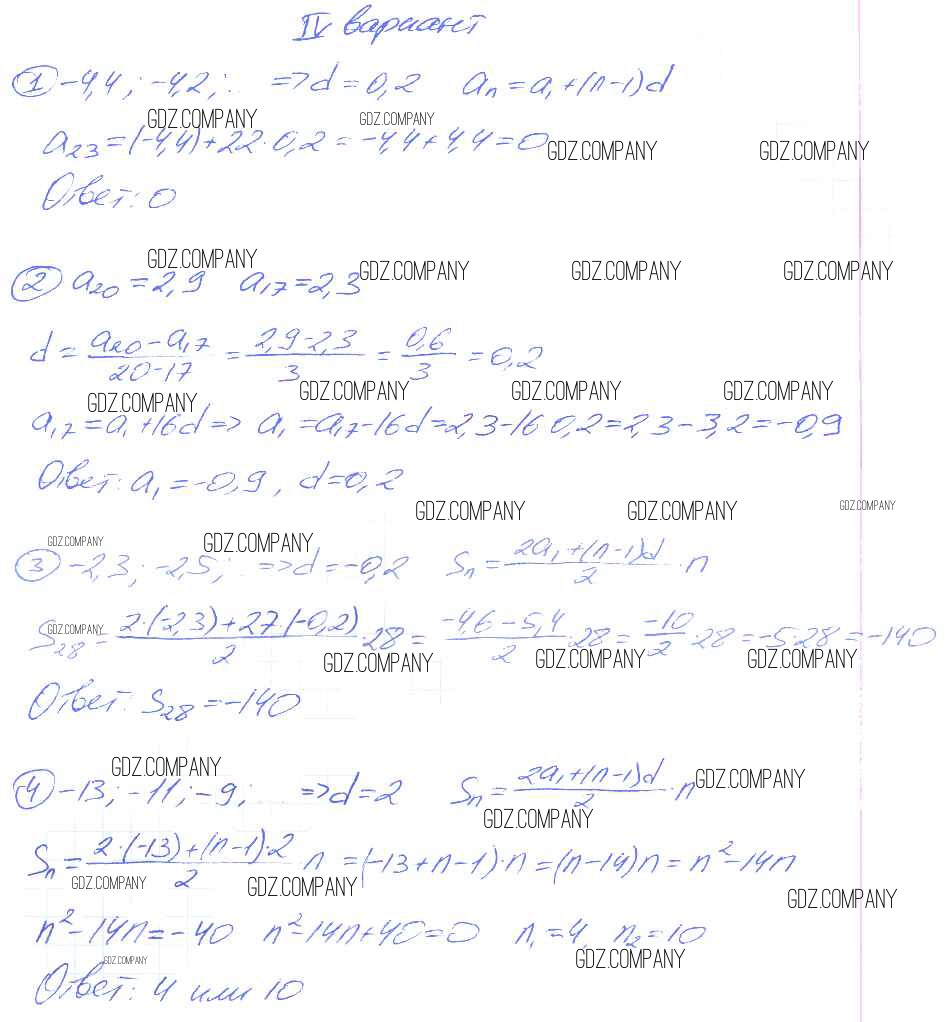 IV вариант
① -4,4; -4,2; .. => d = 0,2 aₙ = a₁ + (n-1)d
GDZ.COMPANY GDZ.COMPANY
a₂₃ = (-4,4) + 22·0,2 = -4,4 + 4,4 = 0 GDZ.COMPANY GDZ.COMPANY
Ответ: 0
GDZ.COMPANY GDZ.COMPANY GDZ.COMPANY GDZ.COMPANY
② a₂₀ = 2,9 a₁₇ = 2,3
d = (a₂₀ - a₁₇)/(20-17) = (2,9-2,3)/3 = 0,6/3 = 0,2
GDZ.COMPANY GDZ.COMPANY GDZ.COMPANY GDZ.COMPANY
a₁₇ = a₁ + 16d => a₁ = a₁₇ - 16d = 2,3 - 16 0,2 = 2,3 - 3,2 = -0,9
Ответ: a₁ = -0,9, d = 0,2
GDZ.COMPANY GDZ.COMPANY GDZ.COMPANY
GDZ.COMPANY GDZ.COMPANY
③ -2,3; -2,5; .. => d = -0,2 Sₙ = (2a₁ + (n-1)d)/2 · n
GDZ.COMPANY
S₂₈ = (2·(-2,3) + 27·(-0,2))/2 · 28 = (-4,6 - 5,4)/2 · 28 = -10/2 · 28 = -5·28 = -140
GDZ.COMPANY GDZ.COMPANY GDZ.COMPANY
Ответ: S₂₈ = -140
GDZ.COMPANY GDZ.COMPANY
④ -13; -11; -9; .. => d = 2 Sₙ = (2a₁ + (n-1)d)/2 · n
GDZ.COMPANY
Sₙ = (2·(-13) + (n-1)·2)/2 n = (-13 + n - 1)·n = (n-14)n = n² - 14n
GDZ.COMPANY GDZ.COMPANY GDZ.COMPANY
n² - 14n = -40 n² - 14n + 40 = 0 n₁ = 4, n₂ = 10
GDZ.COMPANY GDZ.COMPANY
Ответ: 4 или 10